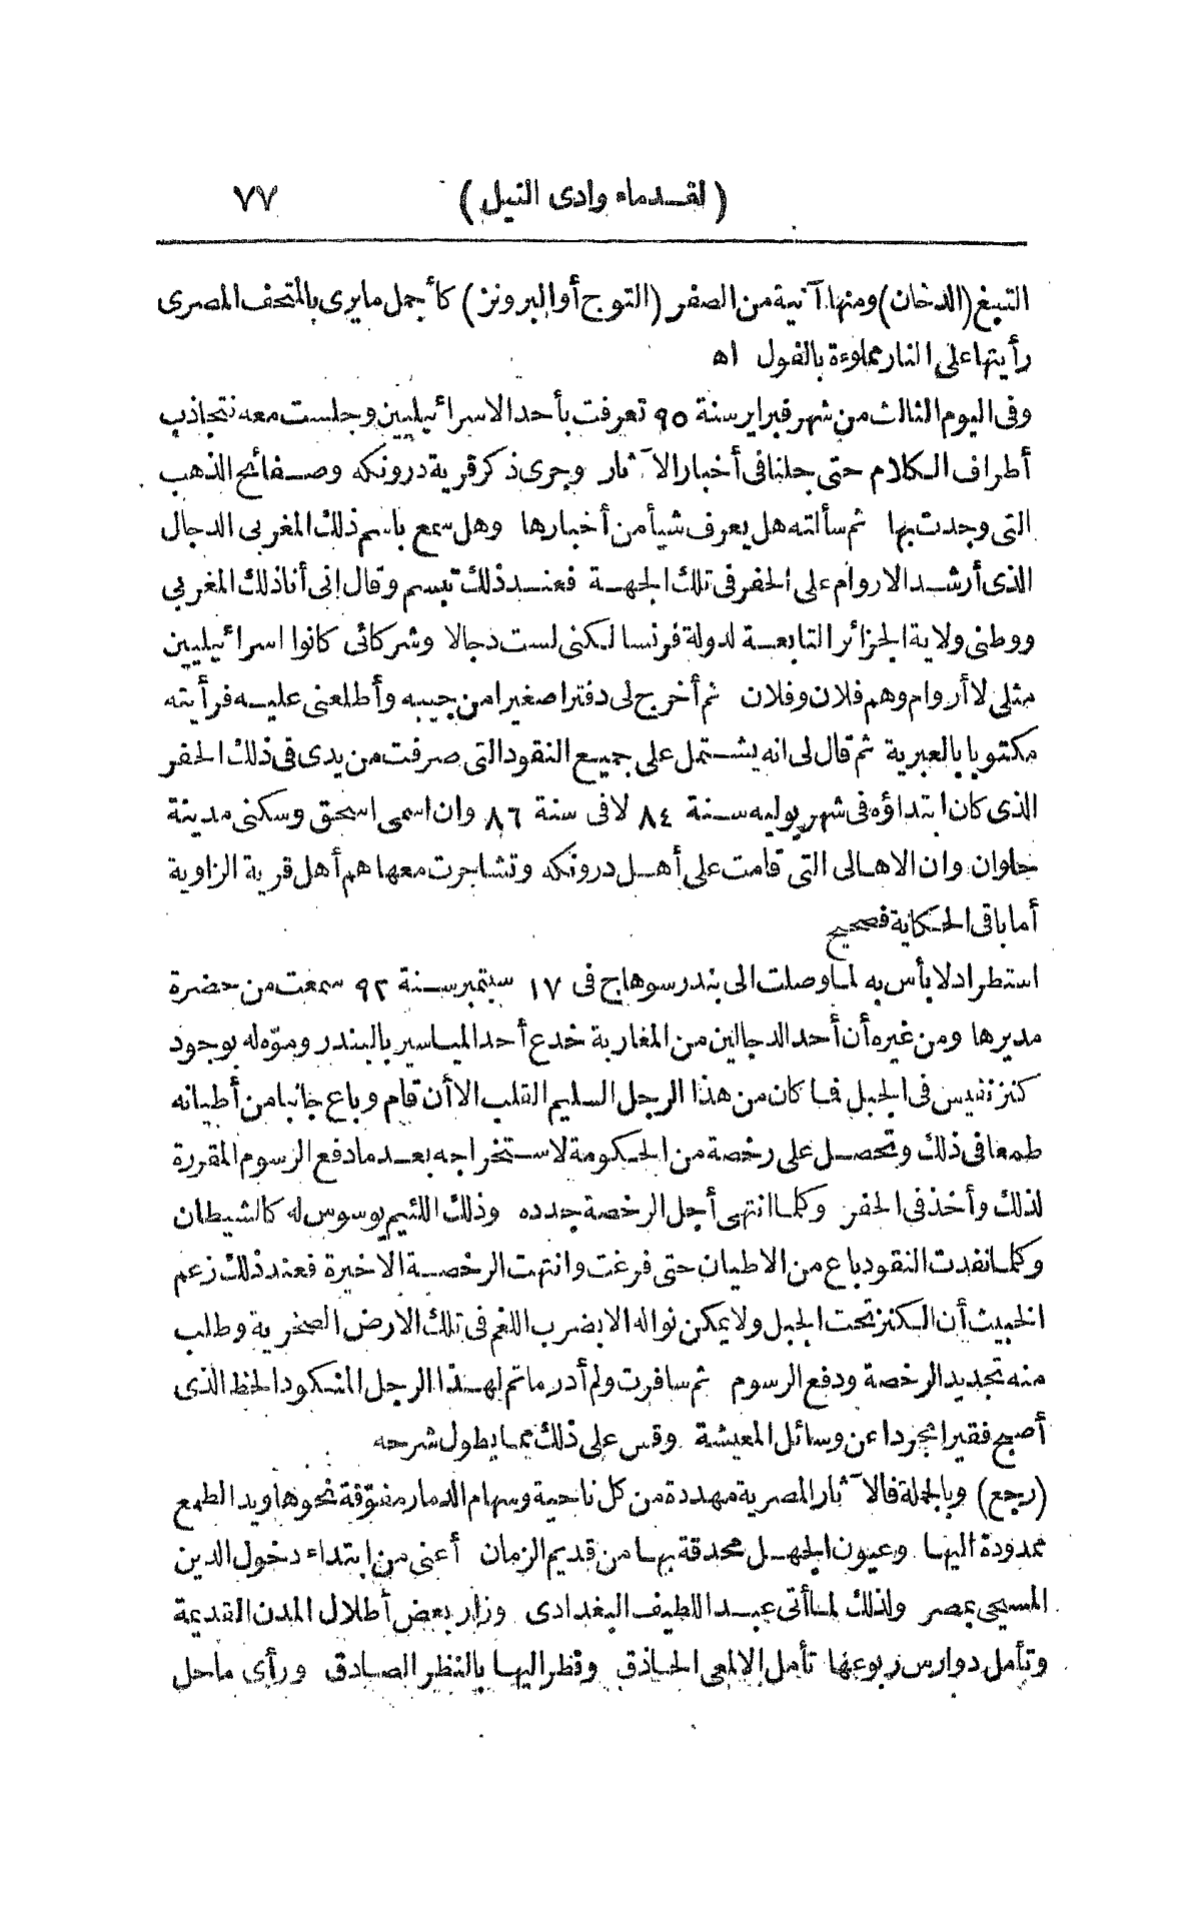 (لقدماء وادى النيل) ٧٧
التبغ (الدخان) ومنها آنية من الصفر (التوج أو البرونز) كأجمل ما يرى بالمتحف المصرى
رأيتها على النار مملوءة بالفول اه
وفى اليوم الثالث من شهر فبراير سنة ٩٥ تعرفت بأحد الاسرائيليين وجلست معه نتجاذب
أطراف الكلام حتى جلنا فى أخبار الآثار وجرى ذكر قرية درونكه وصفائح الذهب
التى وجدت بها ثم سألته هل يعرف شيأ من أخبارها وهل سمع باسم ذلك المغربى الدجال
الذى أرشد الاروام على الحفر فى تلك الجهة فعند ذلك تبسم وقال إنى أنا ذلك المغربى
ووطنى ولاية الجزائر التابعة لدولة فرنسا لكنى لست دجالا وشركائى كانوا اسرائيليين
مثلى لا أروام وهم فلان وفلان ثم أخرج لى دفترا صغيرا من جيبه وأطلعنى عليه فرأيته
مكتوبا بالعبرية ثم قال لى انه يشتمل على جميع النقود التى صرفت من يدى فى ذلك الحفر
الذى كان ابتداؤه فى شهر يوليه سنة ٨٤ لا فى سنة ٨٦ وان اسمى اسحق وسكنى مدينة
حلوان وان الاهالى التى قامت على أهل درونكه وتشاجرت معها هم أهل قرية الزاوية
أما باقى الحكاية فصحيح
استطراد لا بأس به لما وصلت الى بندر سوهاج فى ١٧ سبتمبر سنة ٩٢ سمعت من حضرة
مديرها ومن غيره أن أحد الدجالين من المغاربة خدع أحد المياسير بالبندر ومؤه له بوجود
كنز نفيس فى الجبل فما كان من هذا الرجل السليم القلب الا أن قام وباع جانبا من أطيانه
طمعا فى ذلك وتحصل على رخصة من الحكومة لاستخراجه بعد ما دفع الرسوم المقررة
لذلك وأخذ فى الحفر وكلما انتهى أجل الرخصة جدده وذلك اللئيم يوسوس له كالشيطان
وكلما نفدت النقود باع من الاطيان حتى فرغت وانتهت الرخصة الاخيرة فعند ذلك زعم
الخبيث أن الكنز تحت الجبل ولا يمكن نواله الا بضرب اللغم فى تلك الارض الصخرية وطلب
منه تجديد الرخصة ودفع الرسوم ثم سافرت ولم أدر ما تم لهذا الرجل المنكود الحظ الذى
أصبح فقيرا مجردا عن وسائل المعيشة وقس على ذلك مما يطول شرحه
(رجع) وبالجملة فالآثار المصرية مهددة من كل ناحية وسهام الدمار مفوّقة نحوها ويد الطمع
ممدودة اليها وعيون الجهل محدقة بها من قديم الزمان أعنى من ابتداء دخول الدين
المسيحى بمصر ولذلك لما أتى عبد اللطيف البغدادى وزار بعض أطلال المدن القديمة
وتأمل دوارس ربوعها تأمل الالمعى الحاذق ونظر اليها بالنظر الصادق ورأى ما حل